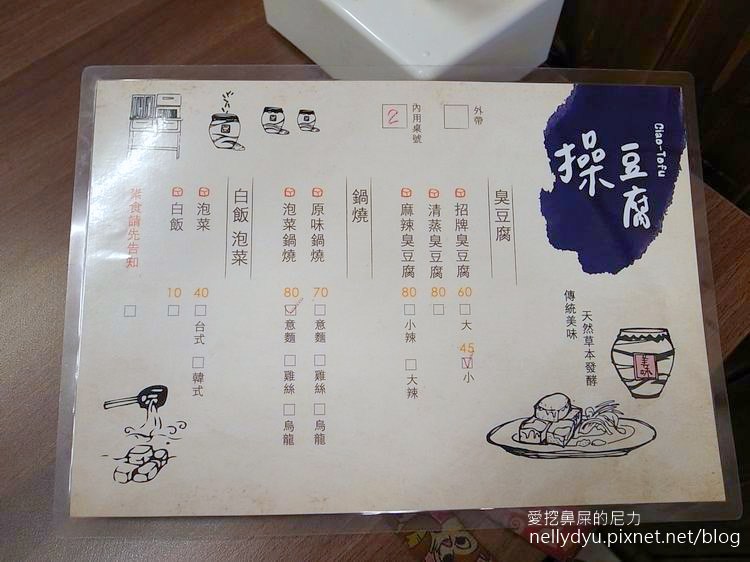 操豆腐
Ciao-Tofu
傳統美味
天然草本發酵
美味
外帶
內用桌號
2
臭豆腐
招牌臭豆腐 60 大 45 小
清蒸臭豆腐 80
麻辣臭豆腐 80 小辣 大辣
鍋燒
原味鍋燒 70 意麵 雞絲 烏龍
泡菜鍋燒 80 意麵 雞絲 烏龍
白飯 泡菜
泡菜 40 台式 韓式
白飯 10
素食請先告知
愛挖鼻屎的尼力
nellydyu.pixnet.net/blog